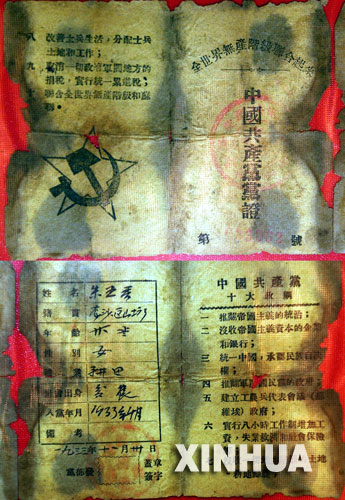 全世界無產階級聯合起來
中國共產黨黨證
第 號
八 改善士兵生活,分配士兵
土地和工作;
九 取消一切政府軍閥地方的
捐稅,實行統一累進稅;
十 聯合全世界無產階級和蘇
聯。
姓名 朱
籍貫
年齡
性別 女
職業 耕田
出身
入黨年月 1933年 月
備考
一九三三年十一月卅日
黨部發 蓋章
簽字
中國共產黨
十大政綱
一 推翻帝國主義的統治;
二 沒收帝國主義資本的企業
和銀行;
三 統一中國,承認民族自決
權;
四 推翻軍閥國民黨的政府;
五 建立工農兵代表會議(蘇
維埃)政府;
六 實行八小時工作制增加工
資,失業救濟和社會保險
土地
XINHUA